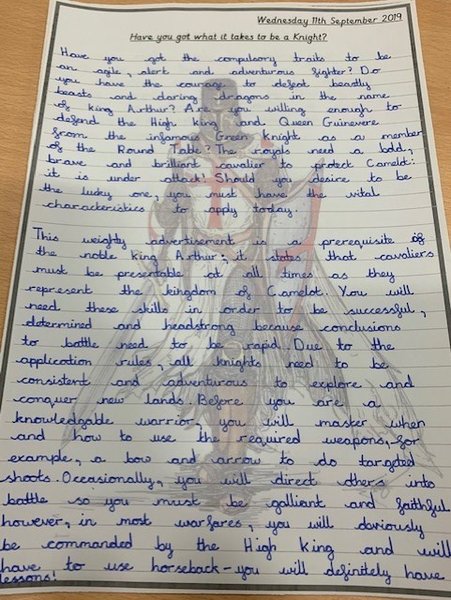 Wednesday 11th September 2019
Have you got what it takes to be a Knight?
Have you got the compulsory traits to be
an agile, alert and adventurous fighter? Do
you have the courage to defeat beastly
beasts and daring dragons in the name
of king Arthur? Are you willing enough to
defend the High king and Queen Guinevere
from the infamous Green Knight as a member
of the Round Table? The royals need a bold,
brave and brilliant cavalier to protect Camelot:
it is under attack! Should you desire to be
the lucky one, you must have the vital
characteristics to apply today.
This weighty advertisement is a prerequisite of
the noble king Arthur; it states that cavaliers
must be presentable at all times as they
represent the kingdom of Camelot. You will
need these skills in order to be successful,
determined and headstrong because conclusions
to battle need to be rapid. Due to the
application rules, all knights need to be
consistent and adventurous to explore and
conquer new lands. Before you are a
knowledgable warrior, you will master when
and how to use the required weapons, for
example, a bow and arrow to do targeted
shoots. Occasionally, you will direct others into
battle so you must be galliant and faithful
however, in most warfares, you will obviously
be commanded by the High king and will
have to use horseback - you will definitely have
lessons!